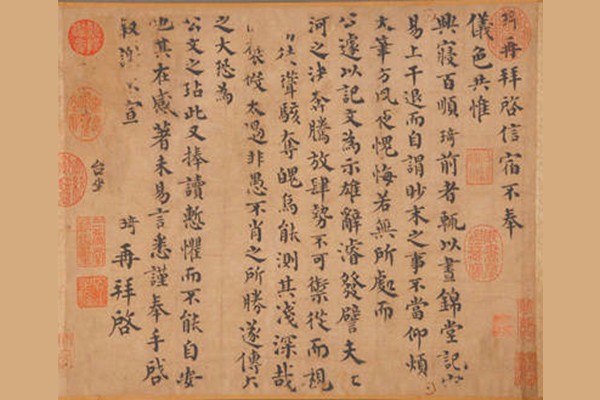 琦再拜啓信宿不奉
儀色共惟
興寢百順琦前者輒以晝錦堂記
易上干退而自謂眇末之事不當仰煩
大筆方夙夜愧悔若無所處而
公遽以記文為示雄辭濬發譬夫
河之決奔騰放肆勢不可禦從而視
徒聳駭奪魄烏能測其淺深哉
襃假太過非愚不肖之所勝遂傳
之大恐為
公文之玷此又捧讀慙懼而不能自安
也其在感著未易言悉謹奉手啓
叙謝不宣
琦再拜啓
台坐